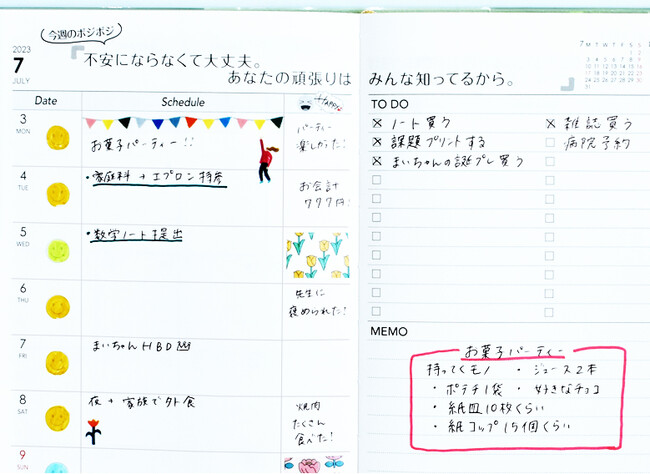 今週のポジポジ
2023
7
JULY
不安にならなくて大丈夫。
あなたの頑張りは みんな知ってるから。
Date Schedule HAPPY
3
MON
お菓子パーティー!!
パーティー
楽しかった!
4
TUE
・家庭科 + エプロン持参
お会計
777円!
5
WED
・数学ノート提出
6
THU
先生に
褒められた!
7
FRI
まいちゃんHBD
8
SAT
夜 + 家族で外食
焼肉
たくさん
食べた!
9
SUN
7 M T W T F S S
1 2
3 4 5 6 7 8 9
10 11 12 13 14 15 16
17 18 19 20 21 22 23
24 25 26 27 28 29 30
31
TO DO
× ノート買う
× 雑誌買う
× 課題プリントする
病院予約
× まいちゃんの誕プレ買う
MEMO
お菓子パーティー
持ってくモノ ・ジュース2本
・ポテチ1袋 ・好きなチョコ
・紙皿10枚くらい
・紙コップ15個くらい